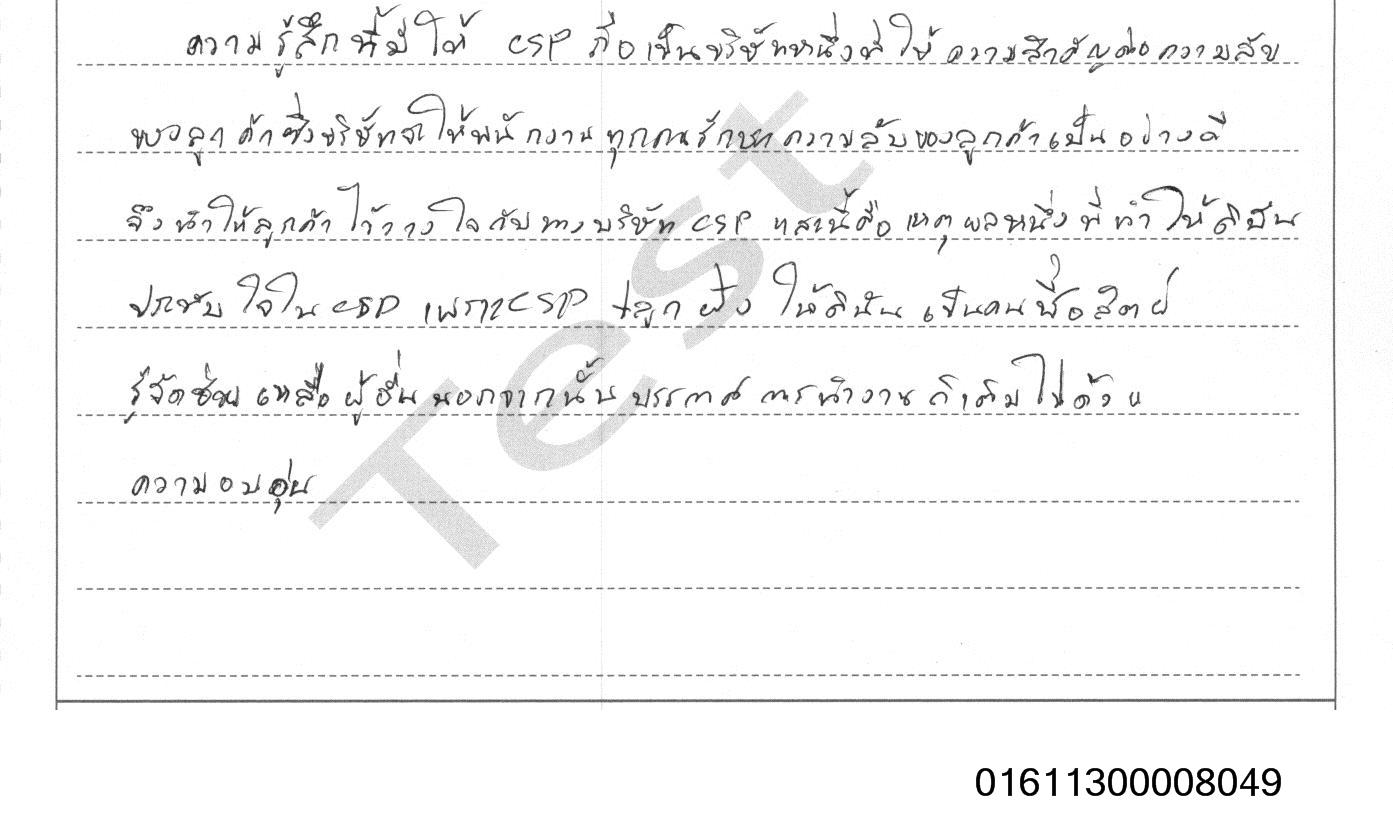 ความรู้สึกที่มีให้ CSP ถือเป็นบริษัทหนึ่งที่ให้ความสำคัญต่อความลับ
ของลูกค้าซึ่งบริษัทจะให้พนักงานทุกคนรักษาความลับของลูกค้าเป็นอย่างดี
จึงทำให้ลูกค้าไว้วางใจกับทางบริษัท CSP และนี้คือเหตุผลหนึ่งที่ทำให้ดิฉัน
ประทับใจใน CSP เพราะ CSP ปลูกฝังให้ดิฉันเป็นคนซื่อสัตย์
รู้จักช่วยเหลือผู้อื่นนอกจากนั้นบรรยากาศการทำงานก็เต็มไปด้วย
ความอบอุ่น
Test
01611300008049